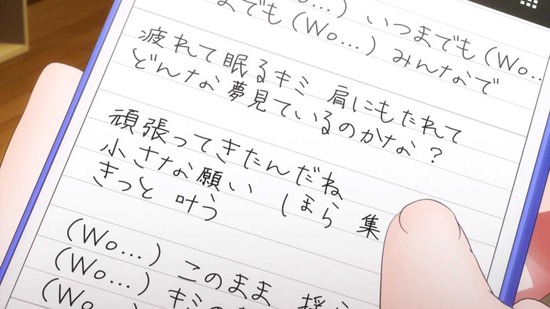 (Wo…) いつまでも (Wo…
までも (Wo…) みんなで
疲れて眠るキミ 肩にもたれて
どんな夢見ているのかな？
頑張ってきたんだね
小さな願い ほら 集
きっと 叶う
(Wo…) このまま
(Wo…) キミの
(Wo…)